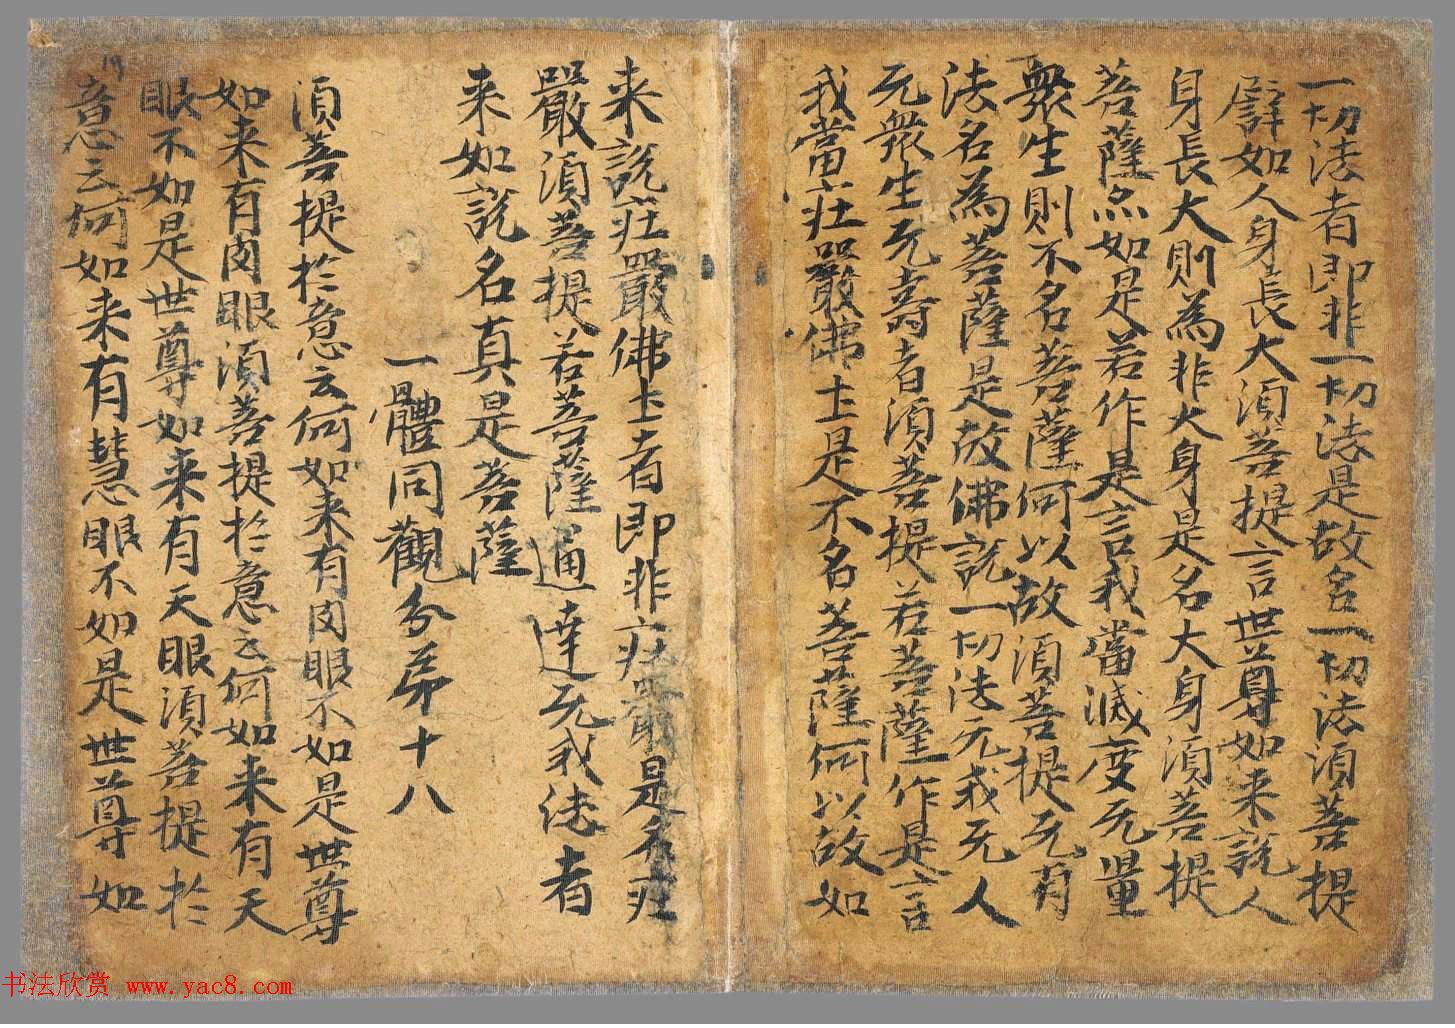 一切法者即非一切法是故名一切法須菩提
譬如人身長大須菩提言世尊如来說人
身長大則為非大身是名大身須菩提
菩薩亦如是若作是言我當滅度无量
衆生則不名菩薩何以故須菩提无有
法名為菩薩是故佛說一切法无我无人
无衆生无壽者須菩提若菩薩作是言
我當庄嚴佛土是不名菩薩何以故如
来說庄嚴佛土者即非庄嚴是名庄
嚴須菩提若菩薩通達无我法者
来如說名真是菩薩
一體同觀分弟十八
須菩提於意云何如来有肉眼不如是世尊
如来有肉眼須菩提於意云何如来有天
眼不如是世尊如来有天眼須菩提於
意云何如来有慧眼不如是世尊如
书法欣赏 www.yac8.com